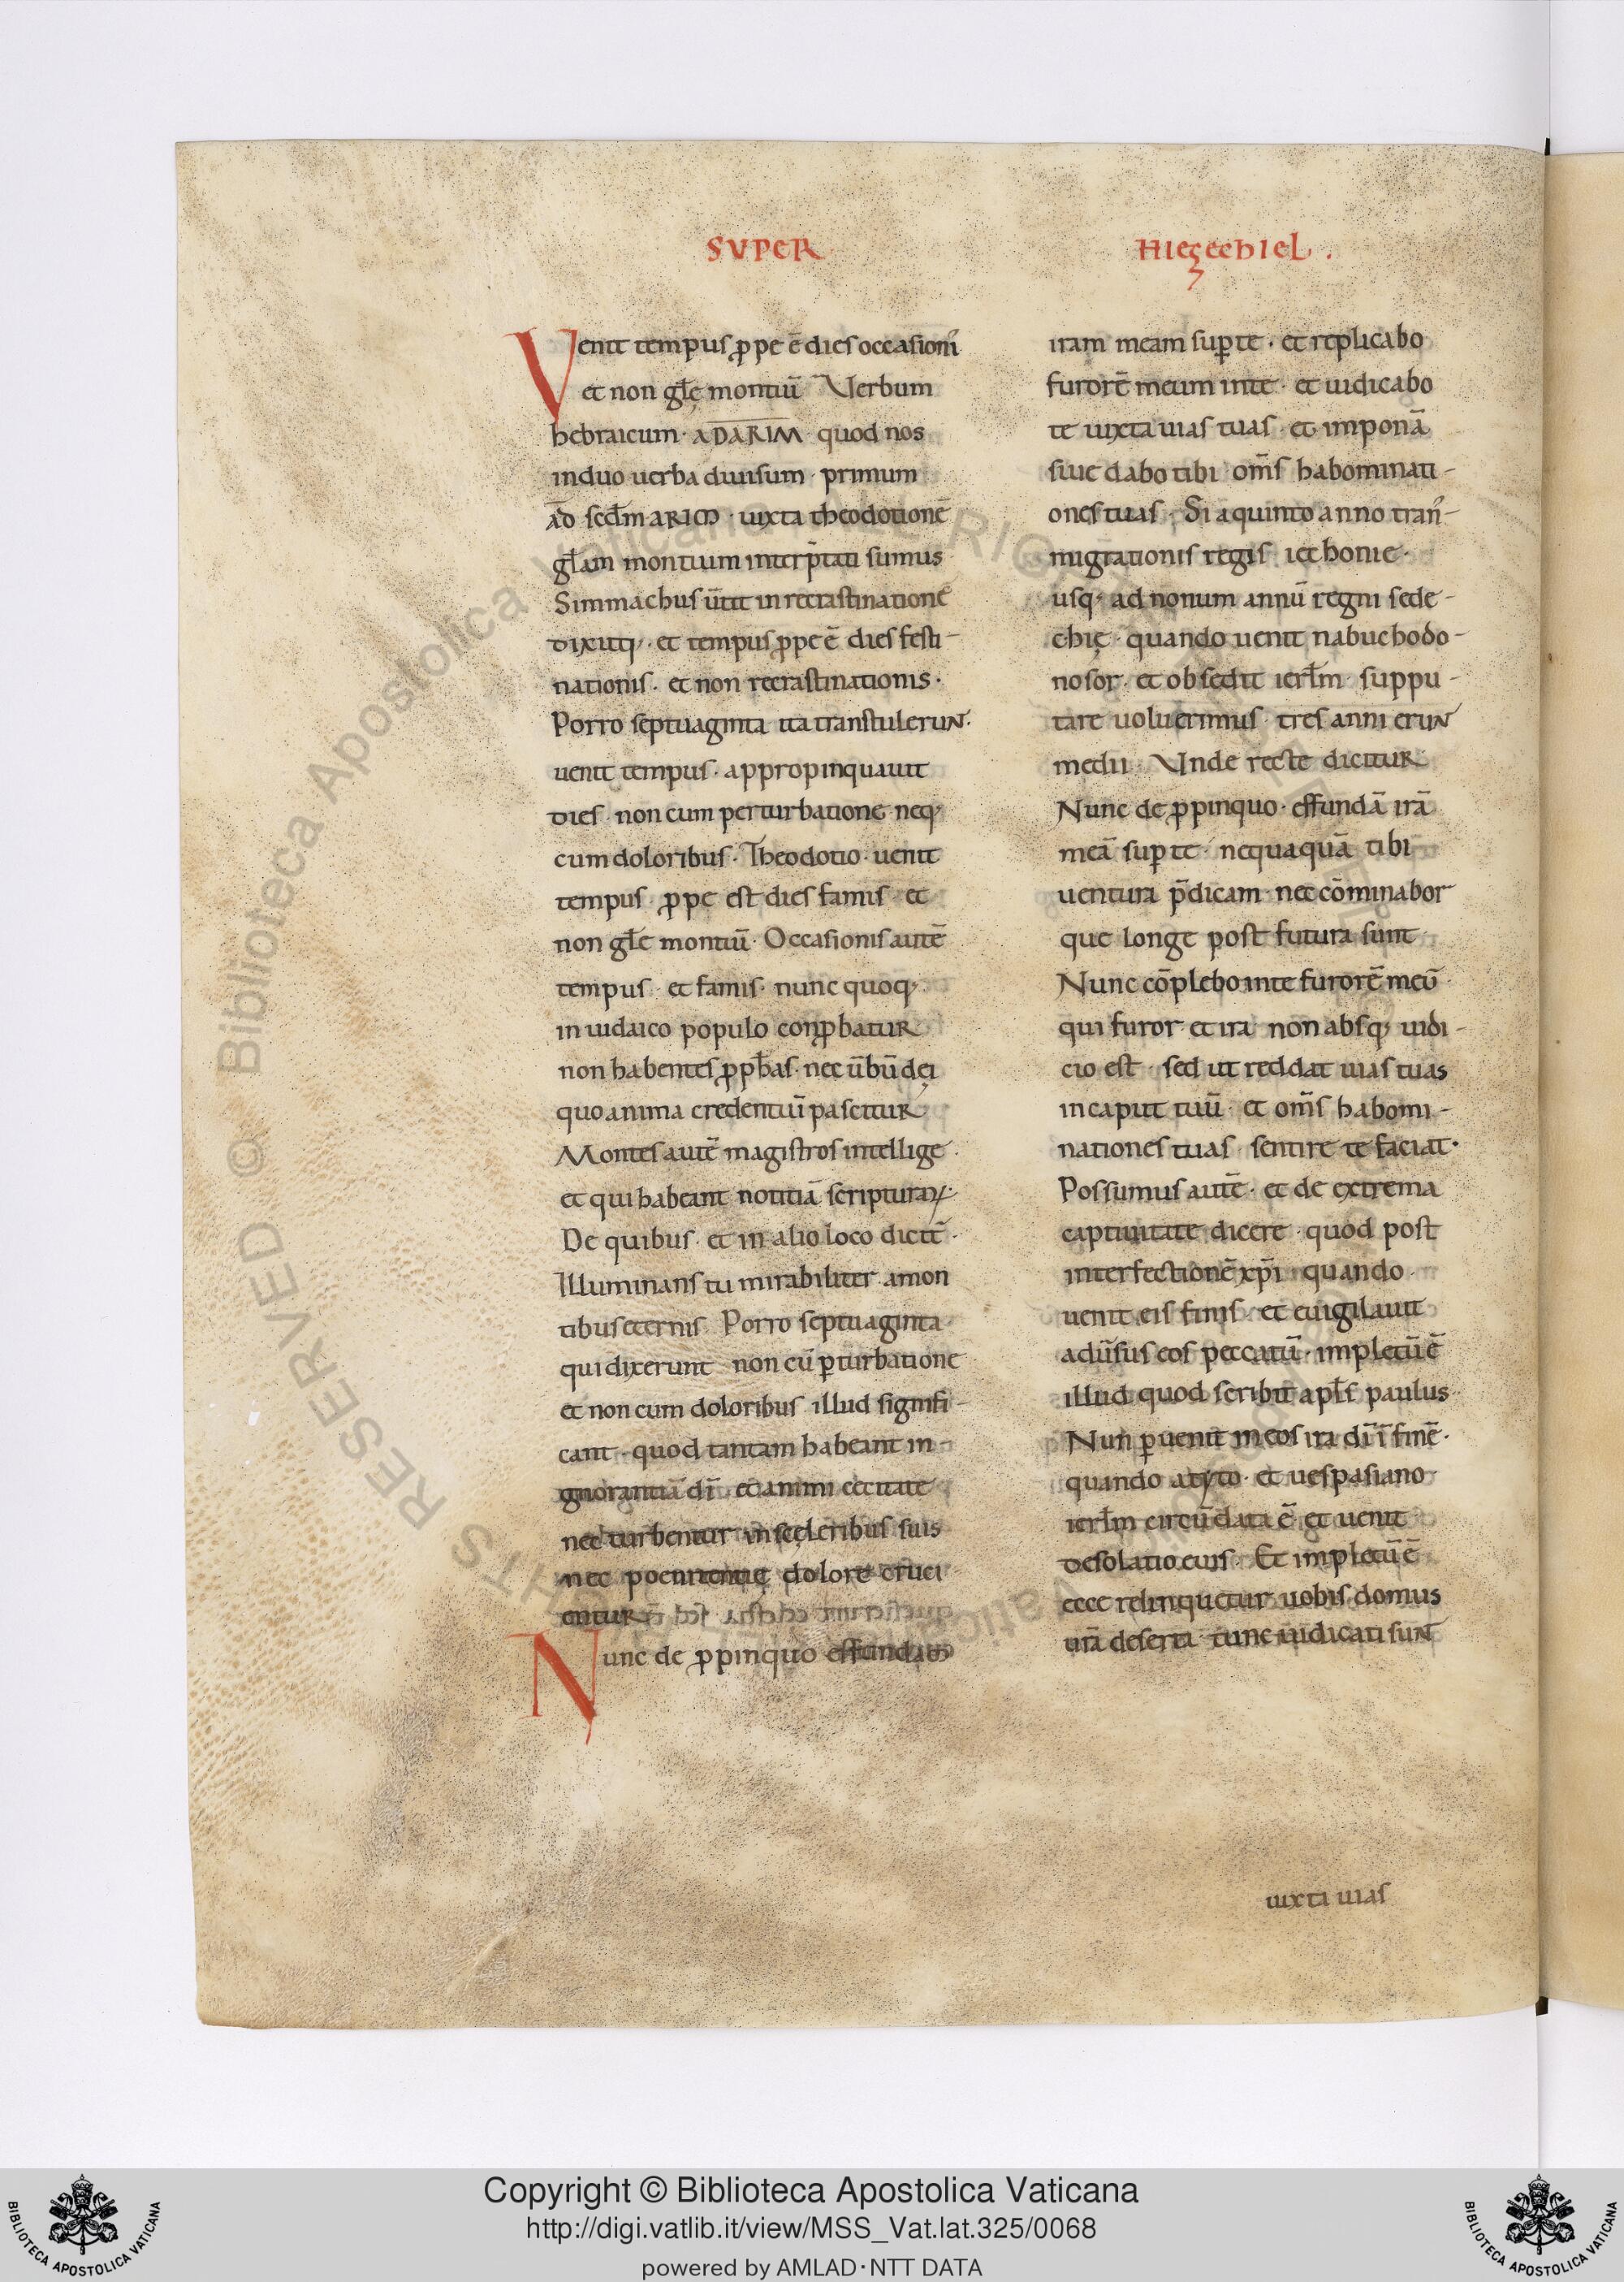 SUPER
HIEZECHIEL .
Venit tempus ꝓpe ē dies occasionis
et non głę montiū Verbum
hebraicum · ADARIM · quod nos
in duo uerba diuisum · primum
ad secłm ARIM · iuxta theodotionē
głam montium interp̄tati sumus
Simmachus ūtit in recrastinationē
dixitq; · et tempus ꝓpe ē dies festi-
nationis · et non recrastinationis ·
Porro septuaginta ita transtulerunt ·
uenit tempus · appropinquauit
dies · non cum perturbatione neq;
cum doloribus · Theodotio · uenit
tempus · ꝓpe est dies famis · et
non głe montiū · Occasionis autē
tempus · et famis · nunc quoq;
in iudaico populo conꝓbatur
non habentes ꝓphas · nec ūbū dei
quo anima credentiū pascitur
Montes autē magistros intellige ·
et qui habeant notitiā scripturaꝝ ·
De quibus · et in alio loco dicit̄ ·
Illuminans tu mirabiliter · amon
tibus eternis Porro septuaginta
qui dixerunt non cū ꝑturbatione
et non cum doloribus illud signifi-
cant · quod tantam habeant in-
gnorantiā dī · et animi cecitate
nec turbentur in sceleribus suis
nec poenitentię dolore cruci
entur
Nunc de ꝓpinquo effundam
iram meam suꝑ te · et replicabo
furorē meum in te · et iudicabo
te iuxta uias tuas · et imponā
siue dabo tibi om̄s habominati-
ones tuas · Si a quinto anno trans-
migrationis regis iechonie ·
usq; ad nonum annū regni sede-
chię · quando uenit nabuchodo-
nosor · et obsedit ierłm · suppu-
tare uoluerimus · tres anni erunt
medii · Unde recte dicitur
Nunc de ꝓpinquo · effundā irā
meā suꝑ te · nequaquā tibi
uentura p̄dicam · nec cōminabor
que longe post futura sunt ·
Nunc cōplebo in te furorē meū ·
qui furor et ira non absq; iudi-
cio est · sed ut reddat uias tuas
in caput tuū · et om̄s habomi-
nationes tuas · sentire te faciat ·
Possumus autē · et de extrema
captiuitate dicere · quod post
interfectionē xp̄i · quando
uenit eis finis · et euigilauit
adūsus eos peccatū · impletū ē
illud quod scribit apłs paulus
Nun ꝑuenit in eos ira dī ī finē ·
quando a tyto · et uespasiano
ierłm circūdata ē et uenit
desolatio eius · Et impletū ē
ecce relinquetur uobis domus
urā deserta tunc iudicati sunt
iuxta uias
© Biblioteca Apostolica Vaticana
RESERVED
Copyright © Biblioteca Apostolica Vaticana
http://digi.vatlib.it/view/MSS_Vat.lat.325/0068
powered by AMLAD·NTT DATA
BIBLIOTECA APOSTOLICA VATICANA
BIBLIOTECA APOSTOLICA VATICANA